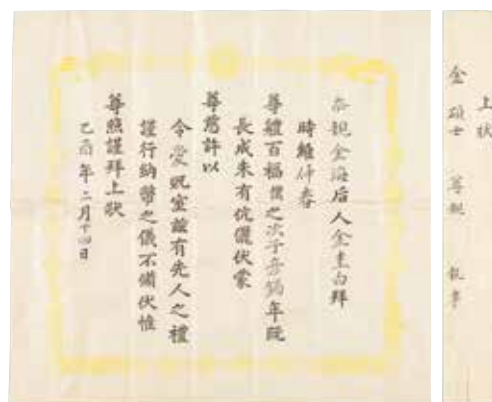 忝親金海后人金圭白拜
時維仲春
尊體百福僕之次子彦年旣
長成未有伉儷伏蒙
尊慈許以
令愛貺室玆有先人之禮
謹行納幣之儀不備伏惟
尊照謹拜上狀
乙酉年二月十四日
上狀
金碩士 尊親 執事